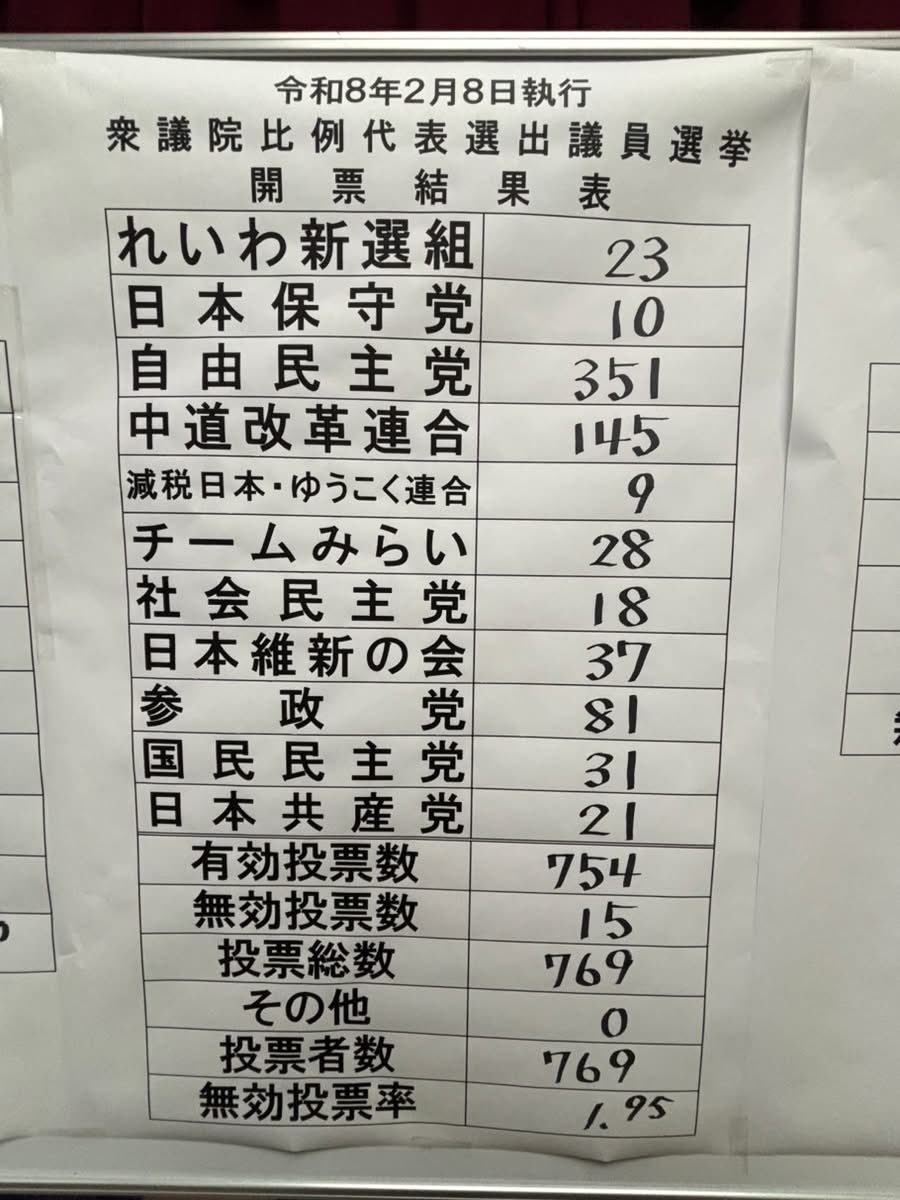 令和8年2月8日執行
衆議院比例代表選出議員選挙
開票結果表
れいわ新選組 23
日本保守党 10
自由民主党 351
中道改革連合 145
減税日本・ゆうこく連合 9
チームみらい 28
社会民主党 18
日本維新の会 37
参政党 81
国民民主党 31
日本共産党 21
有効投票数 754
無効投票数 15
投票総数 769
その他 0
投票者数 769
無効投票率 1.95